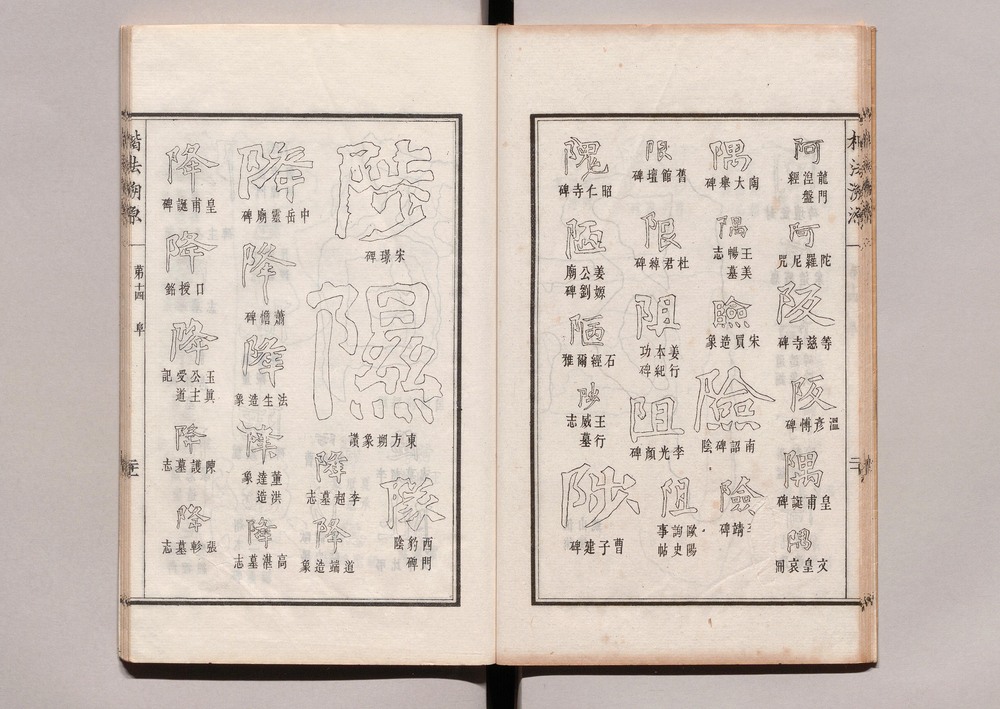 楷法溯源
阿
龍門湼盤經
阿
陀羅尼咒
阪
等慈寺碑
阪
溫彥博碑
隅
皇甫誕碑
隅
文皇哀冊
隅
陶大舉碑
隅
王美暢墓志
險
宋買造象
險
南詔碑陰
險
靖碑
限
舊館壇碑
限
杜君綽碑
阻
姜行本紀功碑
阻
李光顏碑
阻
歐陽詢史事帖
隗
昭仁寺碑
陋
姜嫄公劉廟碑
陋
石經爾雅
陟
王行威墓志
陟
曹子建碑
陟
宋璟碑
隰
東方朔象讚
隊
西門豹碑陰
降
李超墓志
降
道端造象
降
中岳靈廟碑
降
蕭憺碑
降
法生造象
降
董洪達造象
降
高湛墓志
降
皇甫誕碑
降
口授銘
降
玉眞公主受道記
降
陳護墓志
降
張軫墓志
楷法溯源
第十四 阜